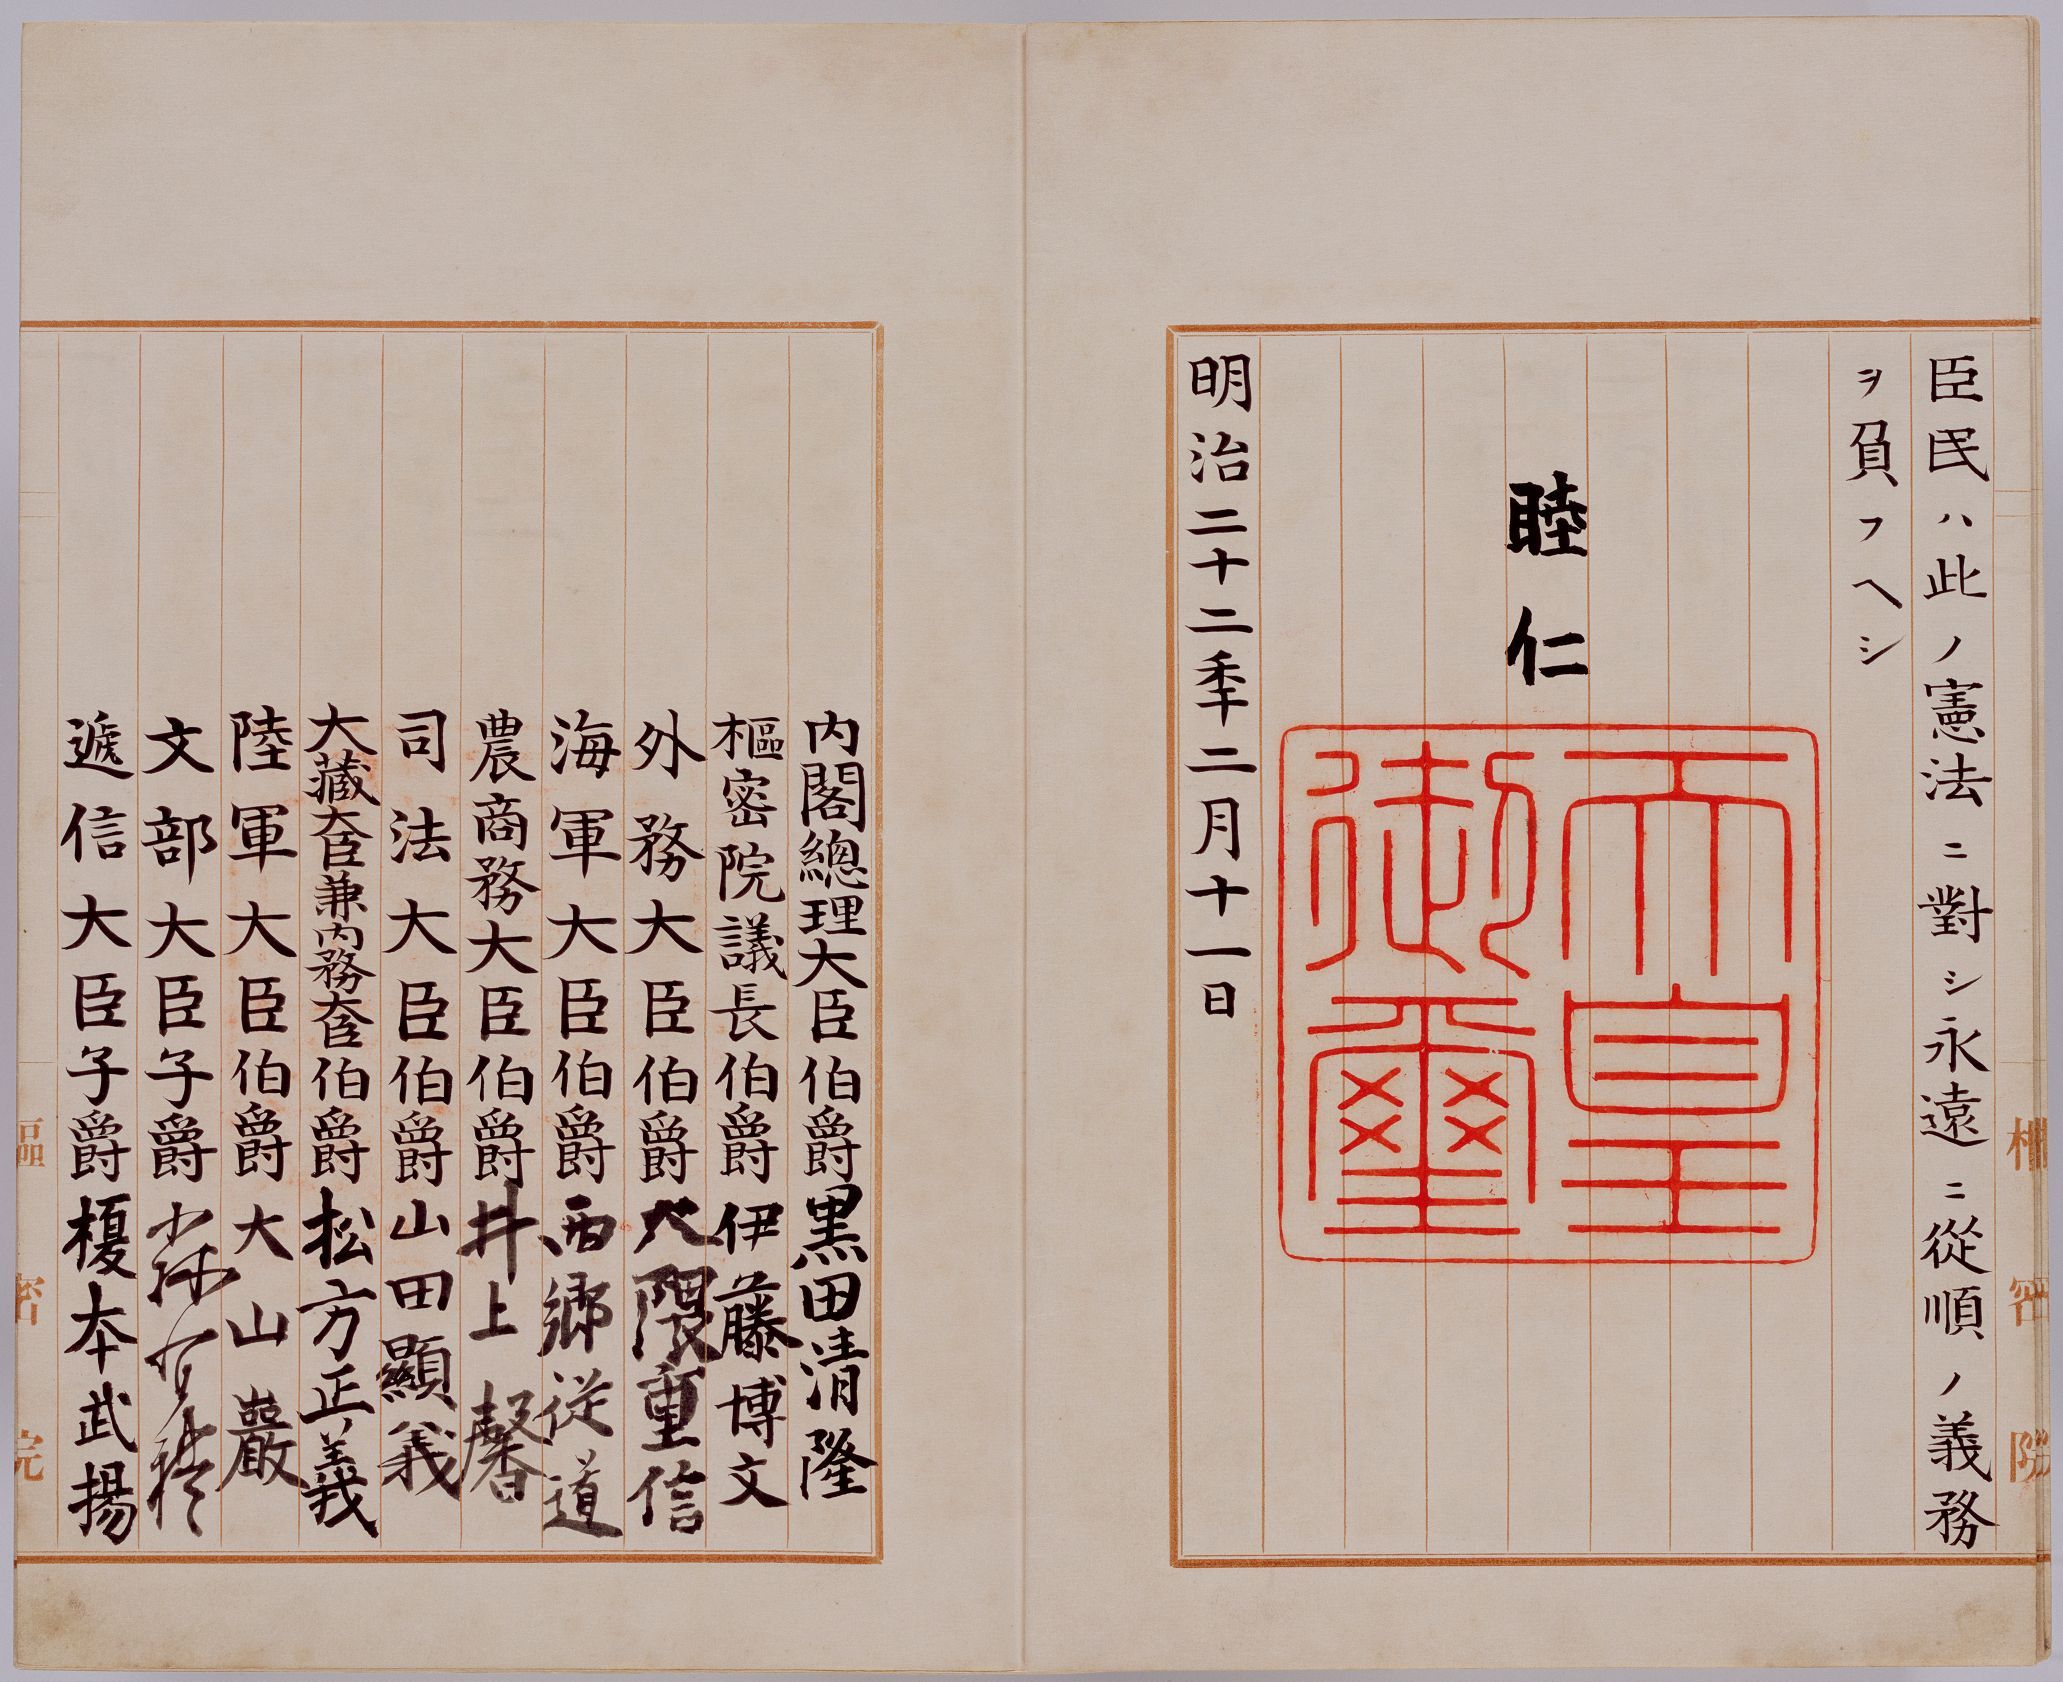 臣民ハ此ノ憲法ニ對シ永遠ニ從順ノ義務
ヲ負フヘシ
睦仁
天皇
御璽
明治二十二年二月十一日
内閣總理大臣伯爵黒田清隆
樞密院議長伯爵伊藤博文
外務大臣伯爵大隈重信
海軍大臣伯爵西郷従道
農商務大臣伯爵井上馨
司法大臣伯爵山田顯義
大藏大臣兼内務大臣伯爵松方正義
陸軍大臣伯爵大山巖
文部大臣子爵森有禮
遞信大臣子爵榎本武揚
樞密院